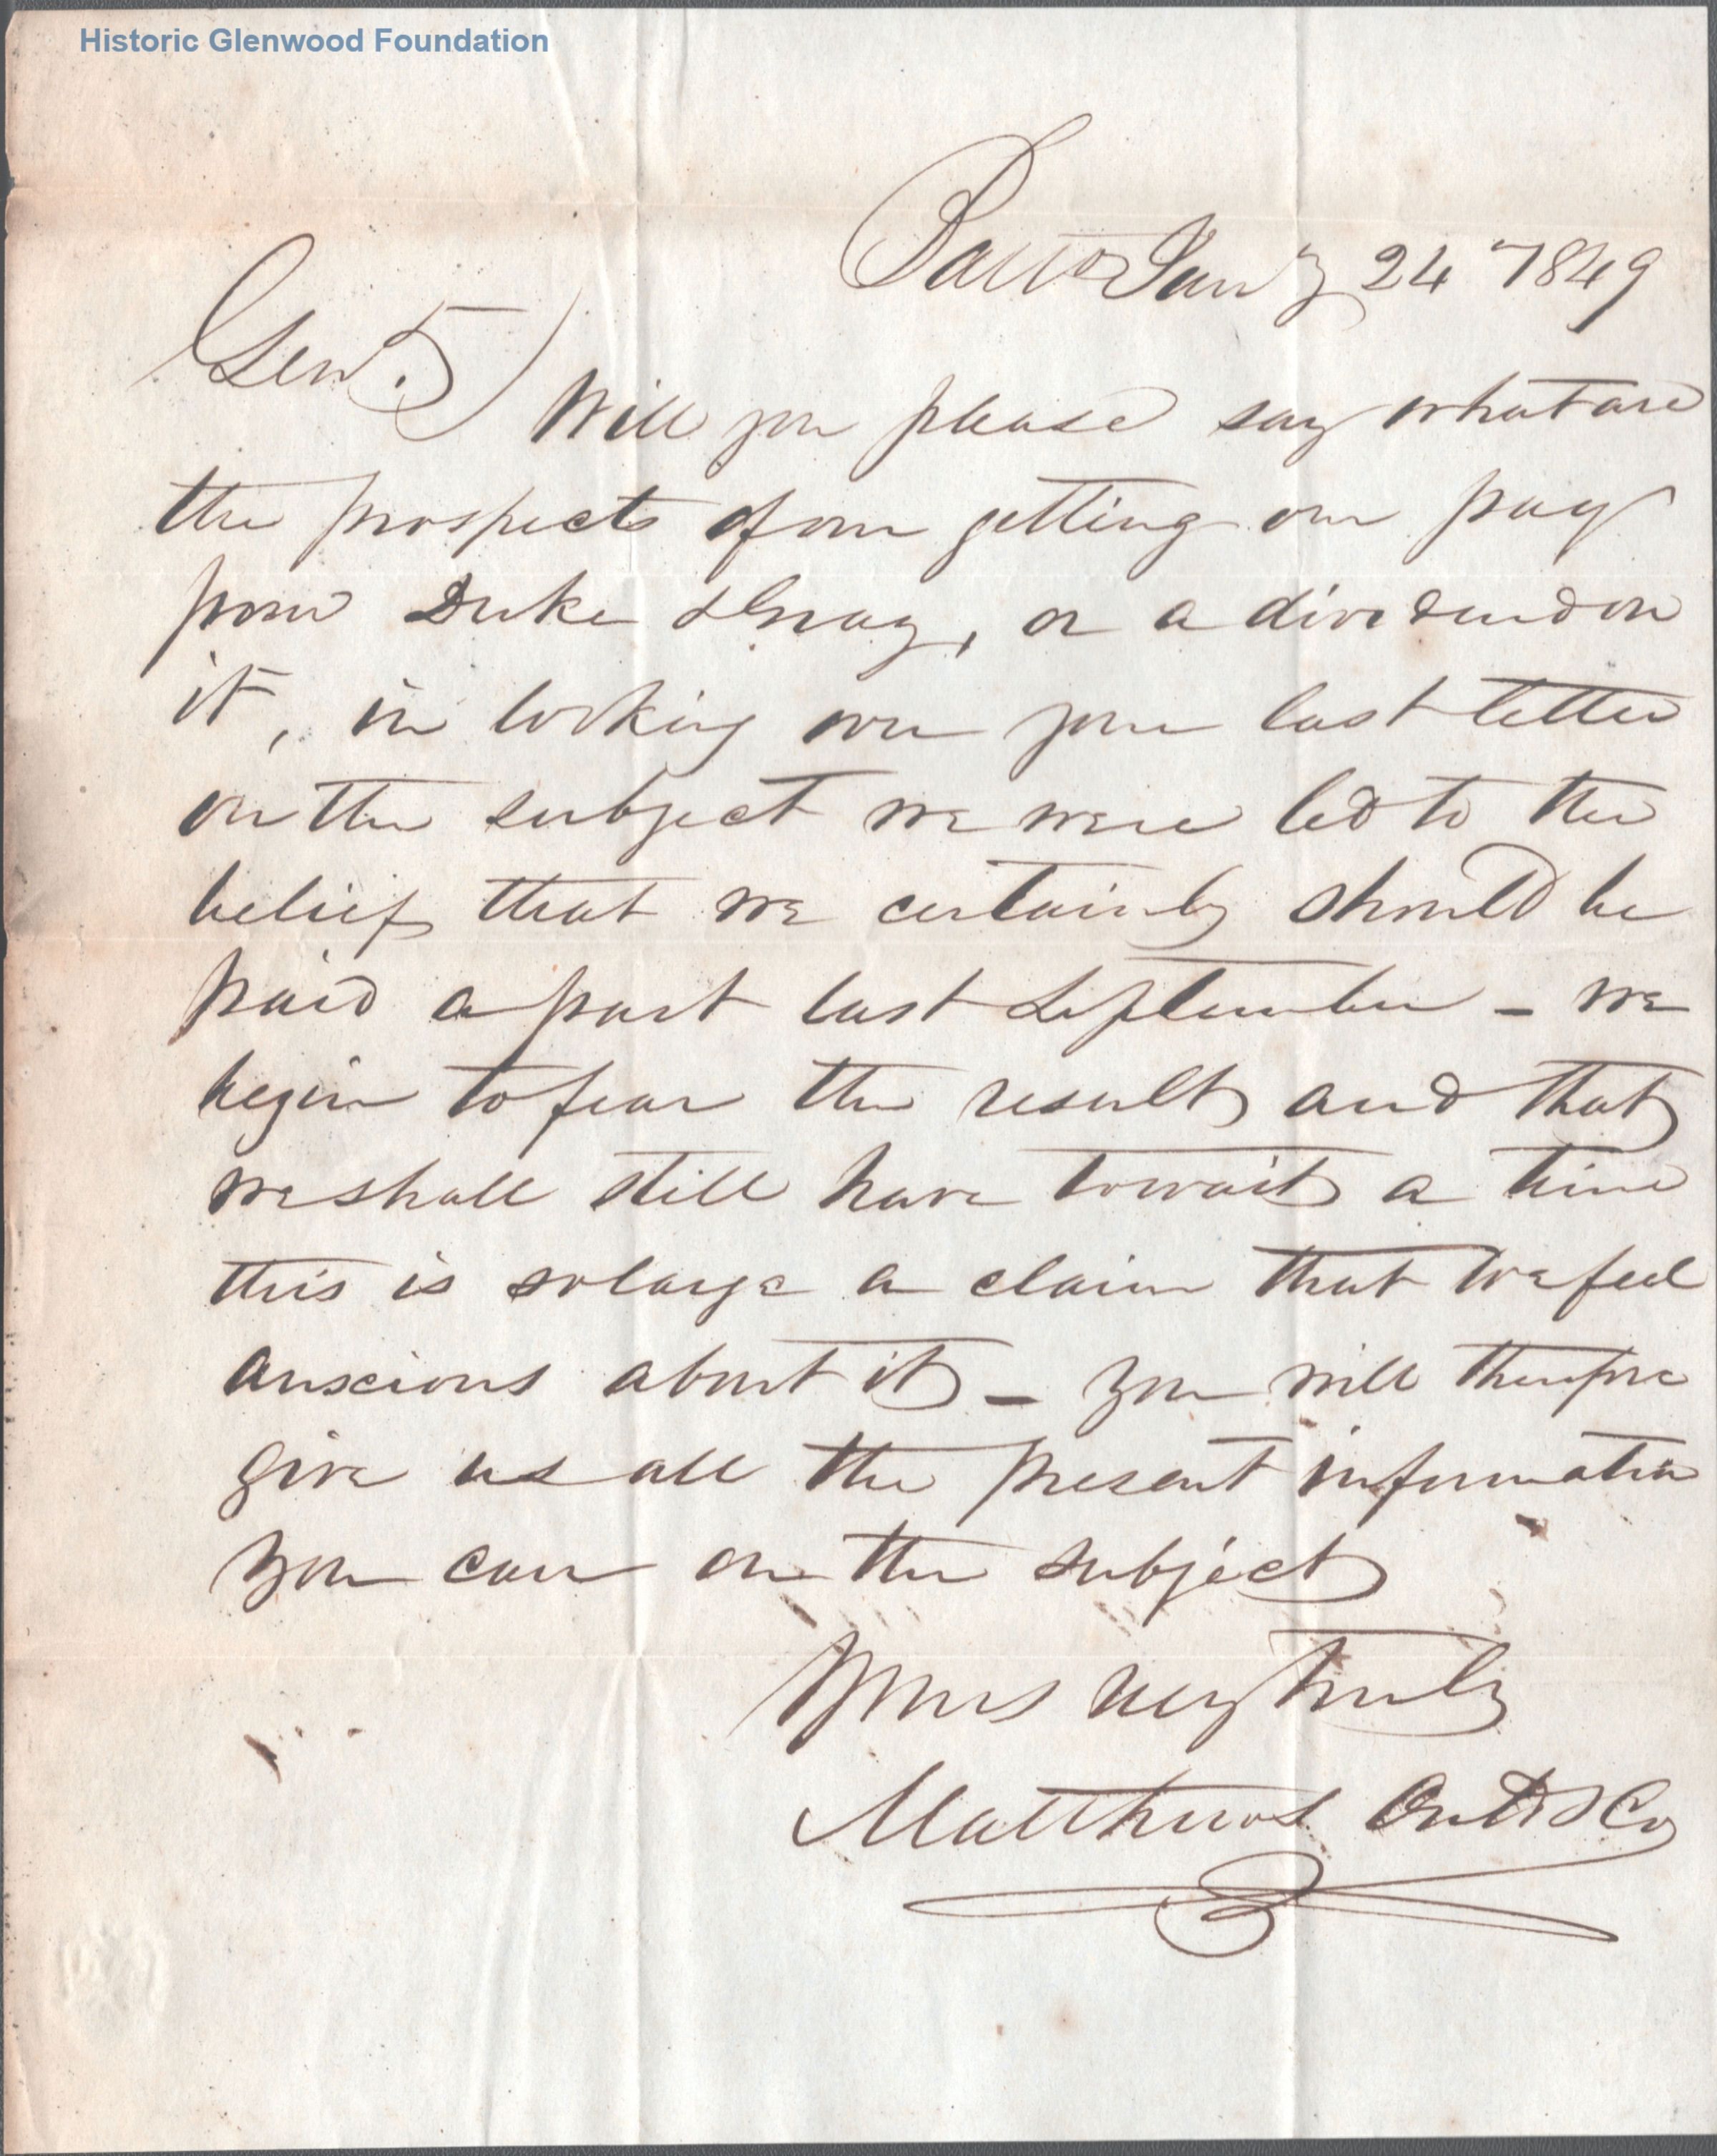 Historic Glenwood Foundation
Balto Jany 24 1849
Gent.
Will you please say what are
the prospects of our getting our pay
from Duke & Gray, or a dividend on
it, in looking over your last letter
on the subject we were led to the
belief that we certainly should be
paid a part last September - we
begin to fear the result and that
we shall still have to wait a time
this is so large a claim that we feel
anxcious about it - you will therefore
give us all the present information
you can on the subject
Yours very truly
Matthews & Co